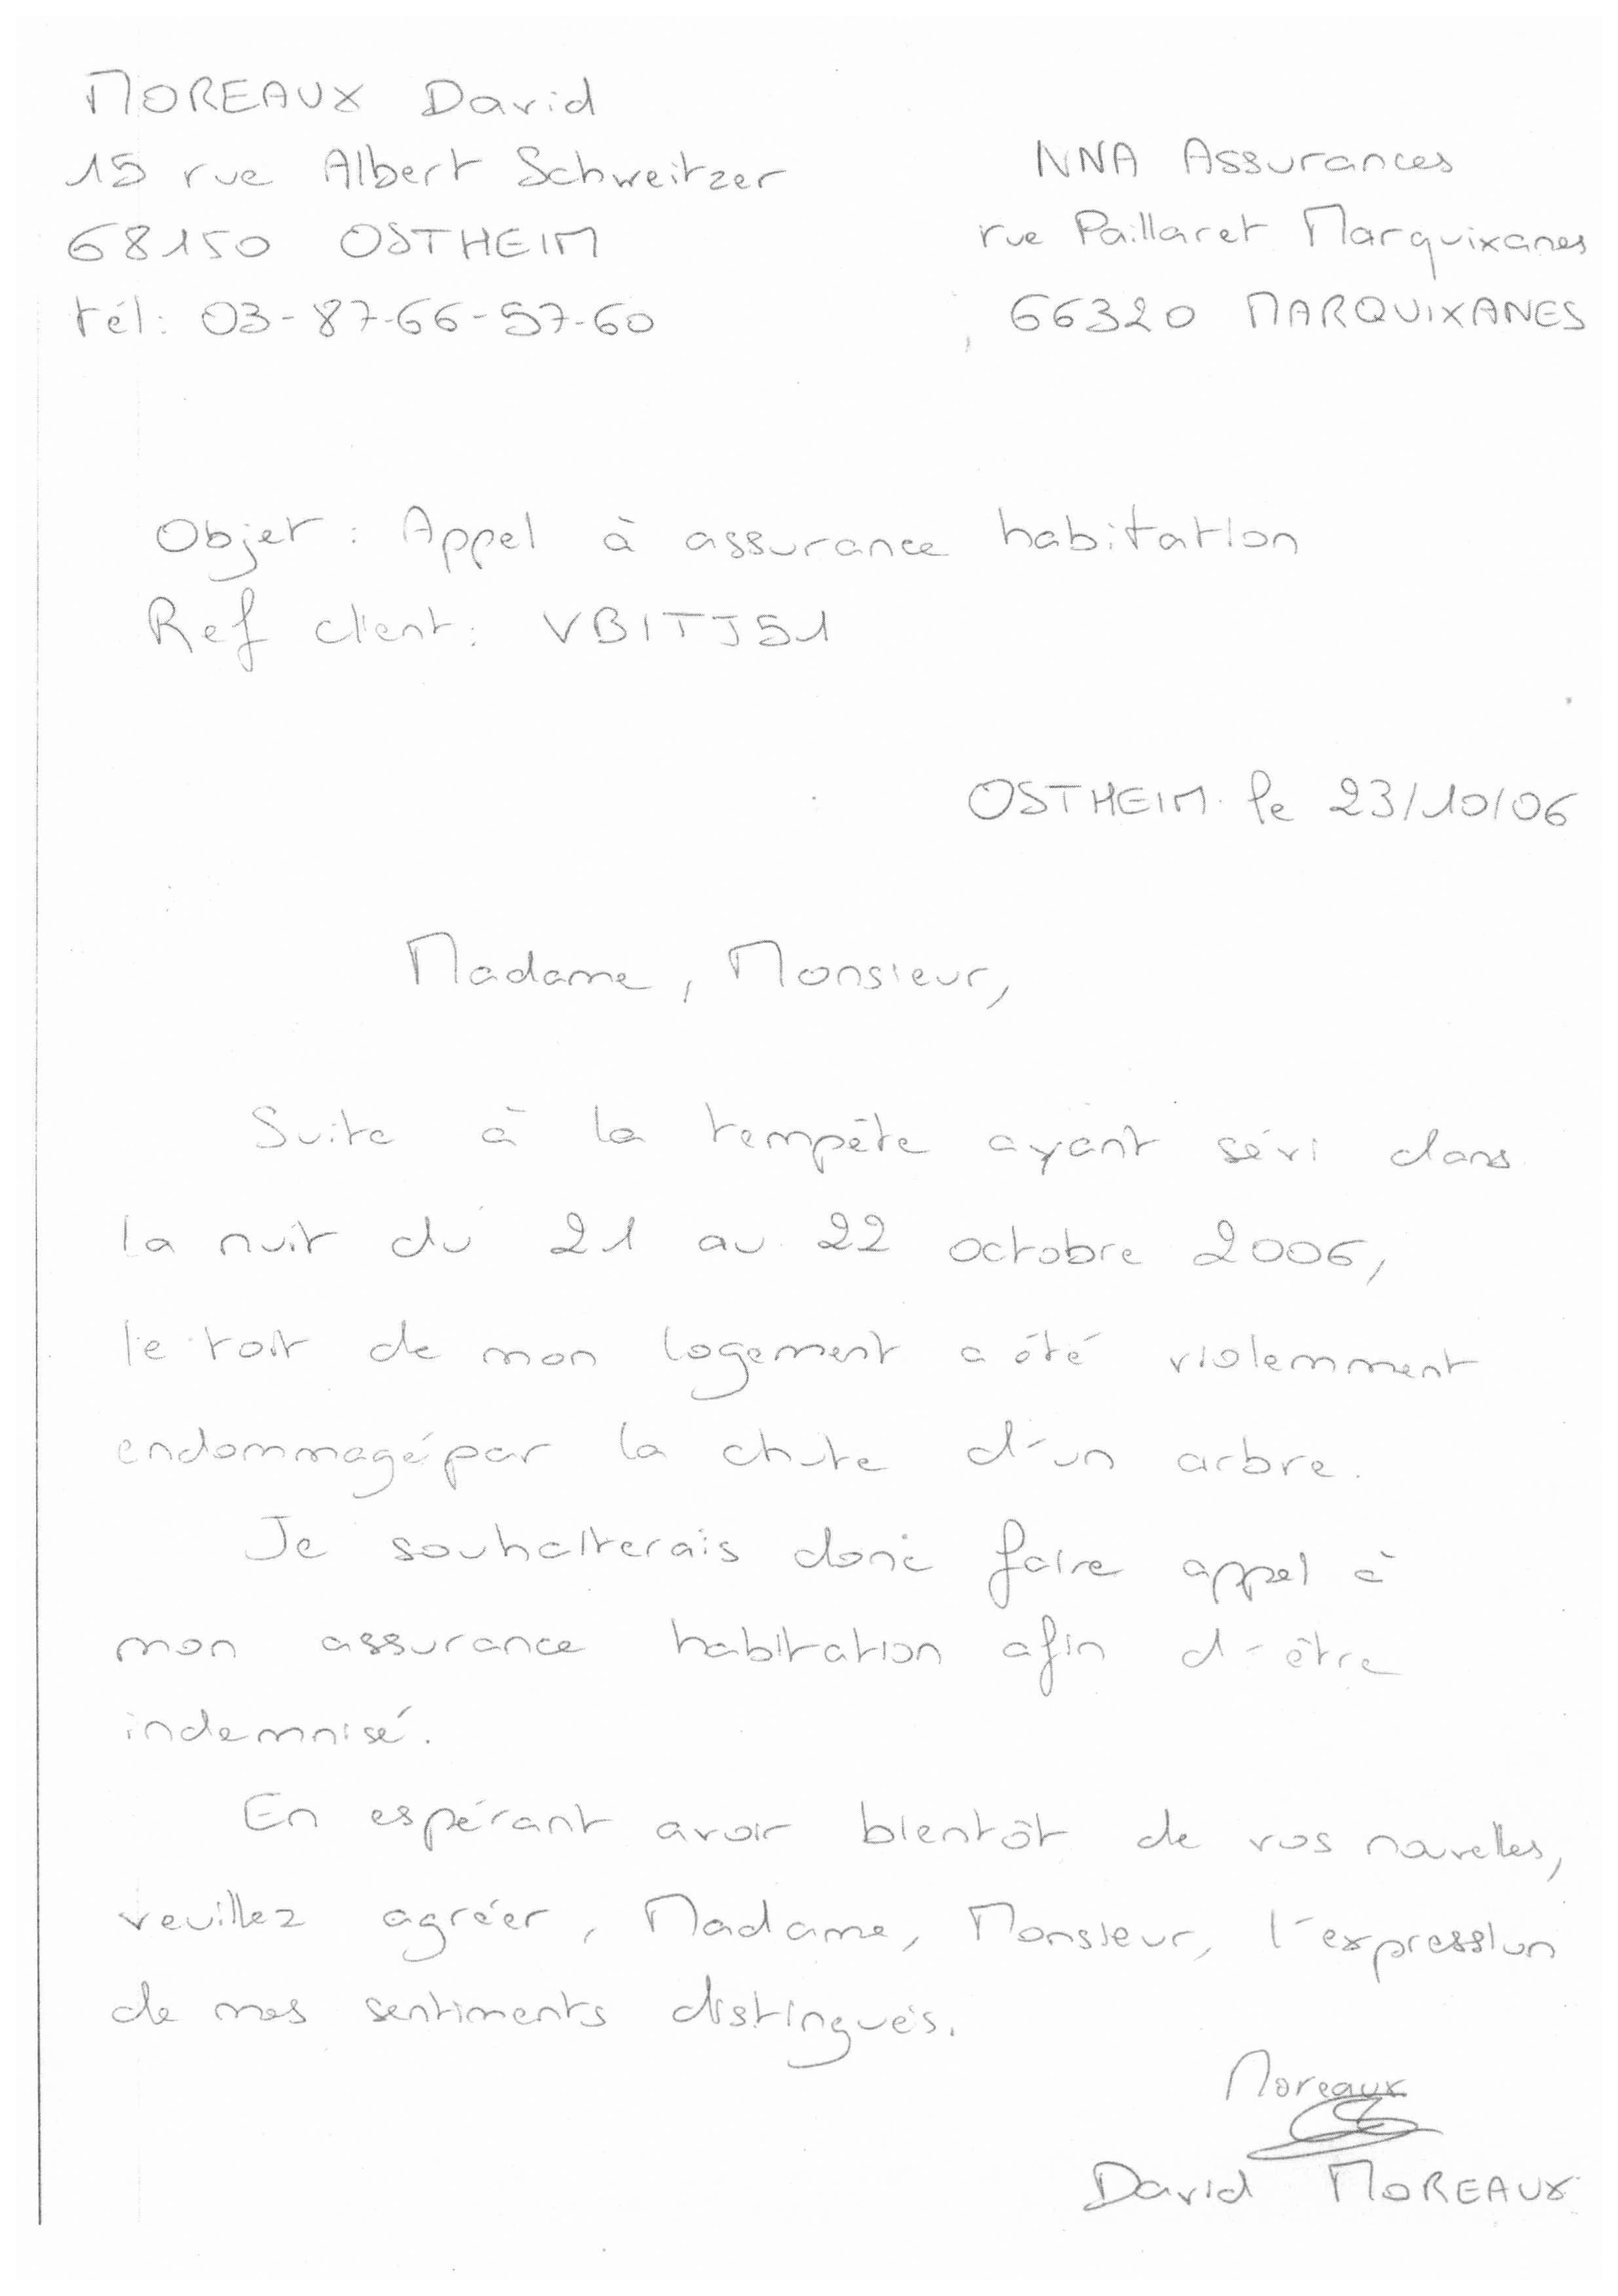 MOREAUX David
15 rue Albert Schweitzer
68150 OSTHEIM
tél: 03-87-66-57-60
NNA Assurances
rue Paillaret Marquixanes
66320 MARQUIXANES
Objet : Appel à assurance habitation
Ref client: VBITJ51
OSTHEIM le 23/10/06
Madame, Monsieur,
Suite à la tempête ayant sévi dans
la nuit du 21 au 22 octobre 2006,
le toit de mon logement a été violemment
endommagé par la chute d'un arbre.
Je souhaiterais donc faire appel à
mon assurance habitation afin d'être
indemnisé.
En espérant avoir bientôt de vos nouvelles,
veuillez agréer, Madame, Monsieur, l'expression
de mes sentiments distingués.
Moreaux
David MOREAUX